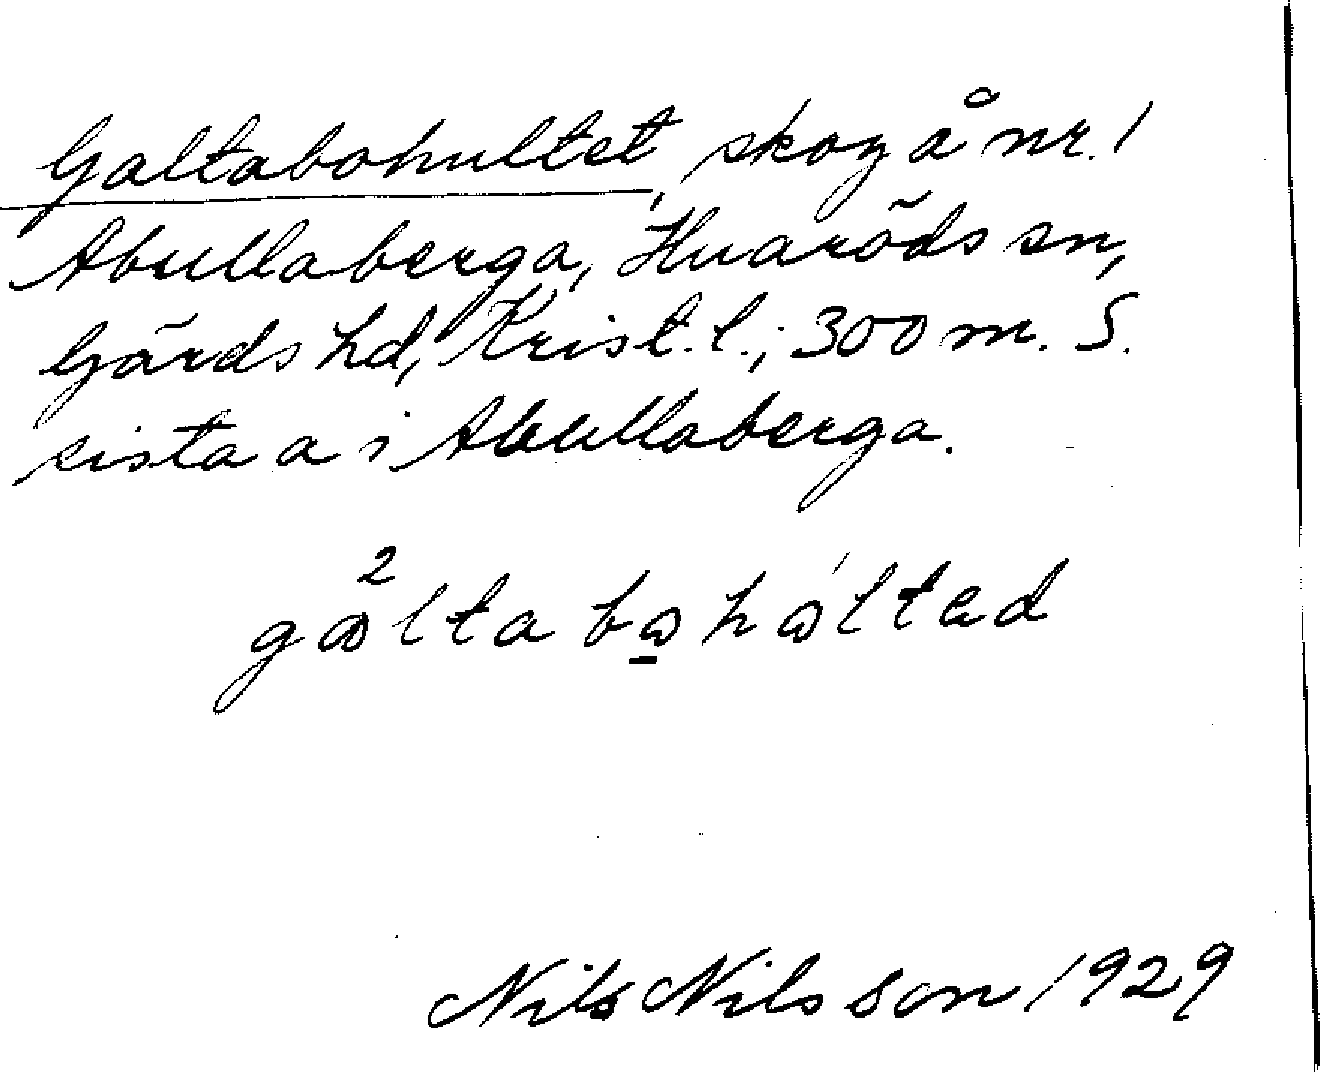 Galtabohultet, skog å nr. 1
Abullaberga, Huaröds sn,
Gärds hd, Krist. l.; 300 m. S.
sista a i Abullaberga.
2
gålta bo hóltad
Nils Nilsson 1929